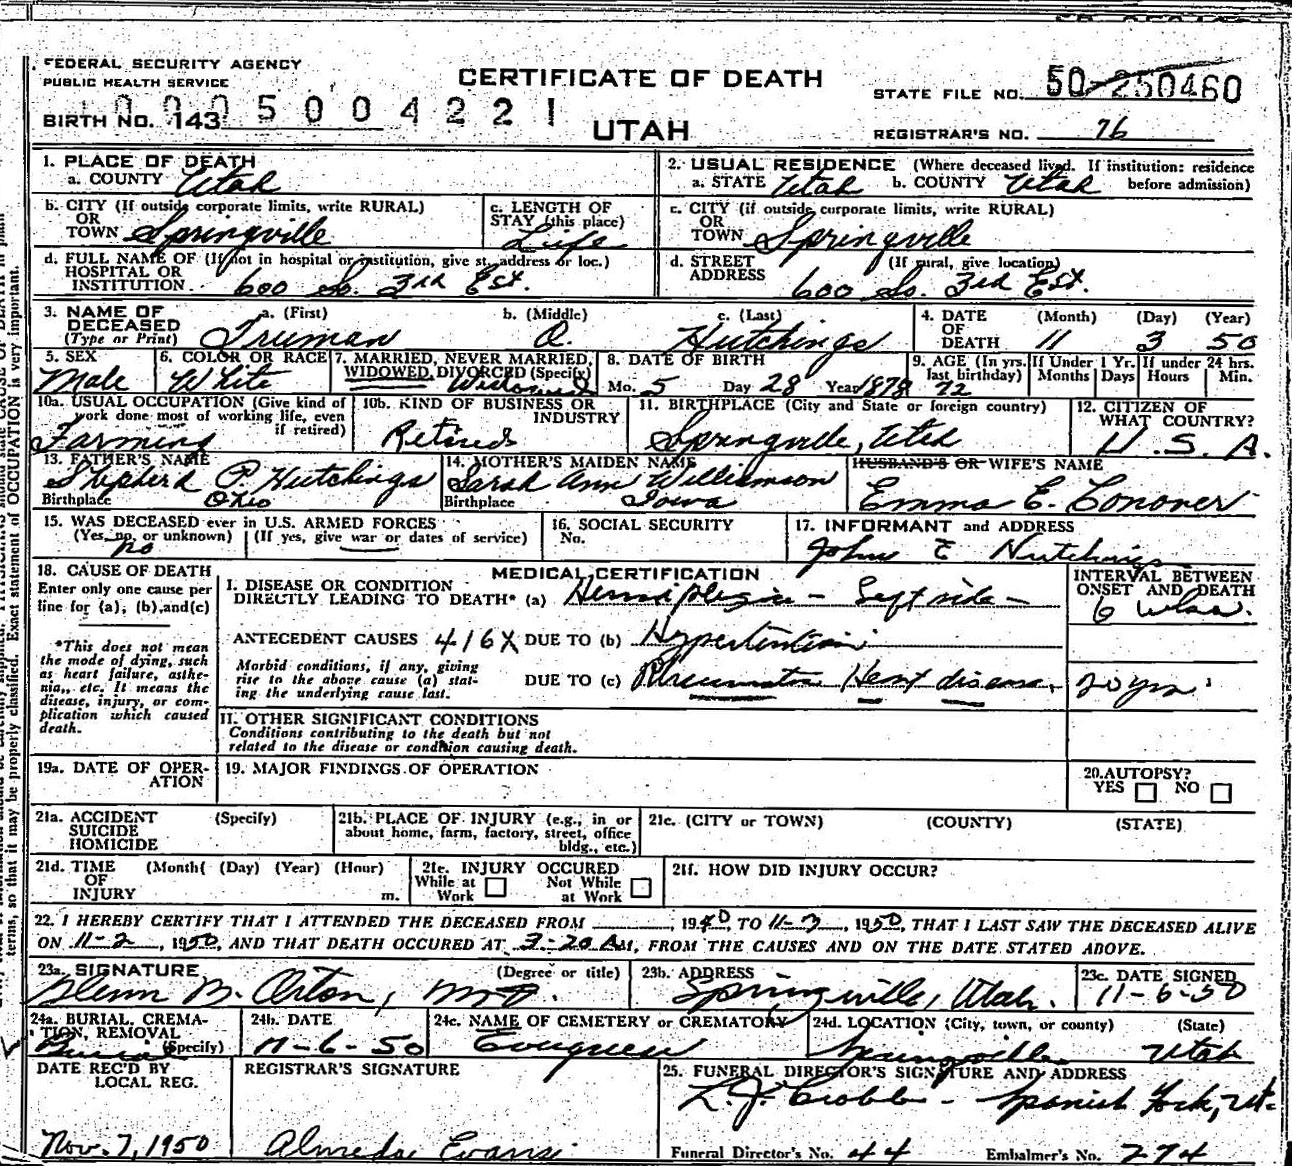 FEDERAL SECURITY AGENCY
PUBLIC HEALTH SERVICE
CERTIFICATE OF DEATH
STATE FILE NO. 50-250460
BIRTH NO. 143
0005004221
UTAH
REGISTRAR'S NO. 76
1. PLACE OF DEATH
a. COUNTY Utah
2. USUAL RESIDENCE (Where deceased lived. If institution: residence before admission)
a. STATE Utah b. COUNTY Utah
b. CITY (If outside corporate limits, write RURAL)
OR
TOWN Springville
c. LENGTH OF
STAY (this place)
Life
c. CITY (if outside corporate limits, write RURAL)
OR
TOWN Springville
d. FULL NAME OF (If not in hospital or institution, give st. address or loc.)
HOSPITAL OR
INSTITUTION 600 So. 3rd Est.
d. STREET (If rural, give location)
ADDRESS 600 So. 3rd Est.
3. NAME OF
DECEASED
(Type or Print)
a. (First) Truman
b. (Middle) O.
c. (Last) Hutchings
4. DATE
OF
DEATH
(Month) (Day) (Year)
11 3 50
5. SEX
Male
6. COLOR OR RACE
White
7. MARRIED, NEVER MARRIED,
WIDOWED, DIVORCED (Specify)
Widowed
8. DATE OF BIRTH
Mo. 5 Day 28 Year 1878
9. AGE (In yrs. last birthday)
72
If Under 1 Yr.
Months Days
If under 24 hrs.
Hours Min.
10a. USUAL OCCUPATION (Give kind of
work done most of working life, even
if retired)
Farming
10b. KIND OF BUSINESS OR
INDUSTRY
Retired
11. BIRTHPLACE (City and State or foreign country)
Springville, Utah
12. CITIZEN OF
WHAT COUNTRY?
U.S.A.
13. FATHER'S NAME
Shepherd P. Hutchings
Birthplace Ohio
14. MOTHER'S MAIDEN NAME
Sarah Ann Williamson
Birthplace Iowa
HUSBAND'S OR WIFE'S NAME
Emma E. Conover
15. WAS DECEASED ever in U.S. ARMED FORCES
(Yes, no, or unknown) (If yes, give war or dates of service)
no
16. SOCIAL SECURITY
No.
17. INFORMANT and ADDRESS
John E Hutchings
18. CAUSE OF DEATH
Enter only one cause per
line for (a), (b), and (c)
*This does not mean
the mode of dying, such
as heart failure, asthe-
nia,, etc. It means the
disease, injury, or com-
plication which caused
death.
MEDICAL CERTIFICATION
I. DISEASE OR CONDITION
DIRECTLY LEADING TO DEATH* (a) Hemiplegia - Left side -
INTERVAL BETWEEN
ONSET AND DEATH
6 wks.
ANTECEDENT CAUSES 416X DUE TO (b) Hypertention
Morbid conditions, if any, giving
rise to the above cause (a) stat-
ing the underlying cause last.
DUE TO (c) Rheumatic Heart disease, 20 yrs.
II. OTHER SIGNIFICANT CONDITIONS
Conditions contributing to the death but not
related to the disease or condition causing death.
19a. DATE OF OPER-
ATION
19. MAJOR FINDINGS OF OPERATION
20. AUTOPSY?
YES NO
21a. ACCIDENT (Specify)
SUICIDE
HOMICIDE
21b. PLACE OF INJURY (e.g., in or
about home, farm, factory, street, office
bldg., etc.)
21c. (CITY or TOWN) (COUNTY) (STATE)
21d. TIME (Month( (Day) (Year) (Hour)
OF
INJURY m.
21e. INJURY OCCURED
While at Work Not While at Work
21f. HOW DID INJURY OCCUR?
22. I HEREBY CERTIFY THAT I ATTENDED THE DECEASED FROM , 1940 TO 11-3, 1950, THAT I LAST SAW THE DECEASED ALIVE
ON 11-2, 1950, AND THAT DEATH OCCURED AT 3-20 AM, FROM THE CAUSES AND ON THE DATE STATED ABOVE.
23a. SIGNATURE (Degree or title)
Glenn B. Orton, M.D.
23b. ADDRESS
Springville, Utah.
23c. DATE SIGNED
11-6-50
24a. BURIAL, CREMA-
TION, REMOVAL
(Specify)
Burial
24b. DATE
11-6-50
24c. NAME OF CEMETERY or CREMATORY
Evergreen
24d. LOCATION (City, town, or county) (State)
Springville Utah
DATE REC'D BY
LOCAL REG.
Nov. 7, 1950
REGISTRAR'S SIGNATURE
Almeda Evans
25. FUNERAL DIRECTOR'S SIGNATURE AND ADDRESS
Spanish Fork, Ut.
Funeral Director's No. 44 Embalmer's No. 274
terms, so that it may be properly classified. Exact statement of OCCUPATION is very important.